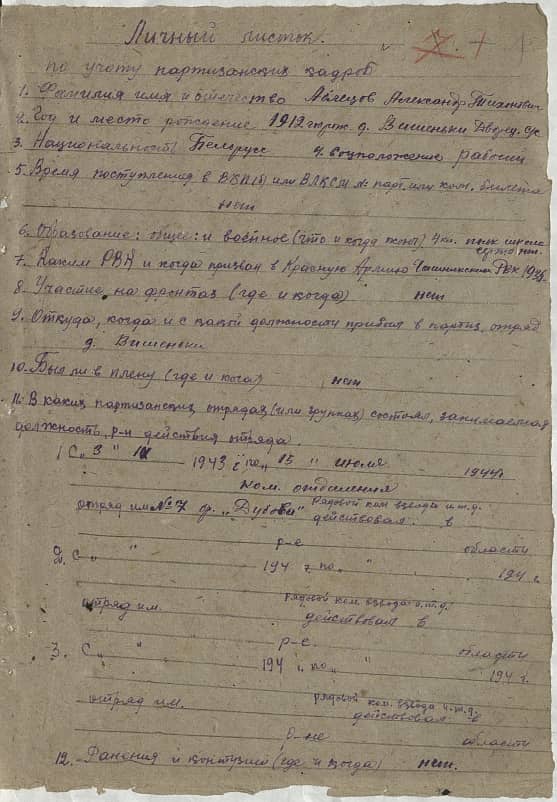 Личный листок.
по учету партизанских кадров
1. Фамилия имя и отчество Авлецов Александр
2. Год и место рождение 1912 г. рож. д. Вишеньки Дворец. с/с
3. Национальность Белорусс 4. соцположение рабочий
5. Время поступления в ВКП(б) или ВЛКСМ № парт. или ком. билета
нет
6. Образование: общее: и военное (что и когда) 4 кл. школы
7. Каким РВК и когда призван в Красную Армию Чашникским РВК
8. Участие на фронтах (где и когда) нет
9. Откуда, когда и с какой должности прибыл в партиз. отряд
д. Вишеньки
10. Был ли в плену (где и кога) нет
11. В каких партизанских отрядах (или группах) состоял, занимаемая
должность, р-н действия отряда.
1 С „ 3 " 1943 г. по „ 15 " июля 1944 г.
ком. отделения
отряд им №7 бр. „Дубова" рядовой ком взвода и.т.д.
действовал в
р-е области
2. С „ " 194 г по „ " 194 г.
отряд им. рядовой ком. взвода и.т.д.
действовал в
р-е. области
3. С „ " 194 г. по „ " 194 г.
отряд им. рядовой ком. взвода и.т.д.
действовал в
области
12. Ранения и контузии (где и когда) нет.